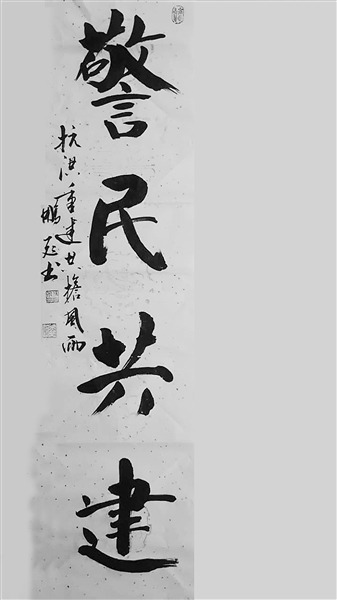 警民共建
抗洪重建共担风雨
鹏延书